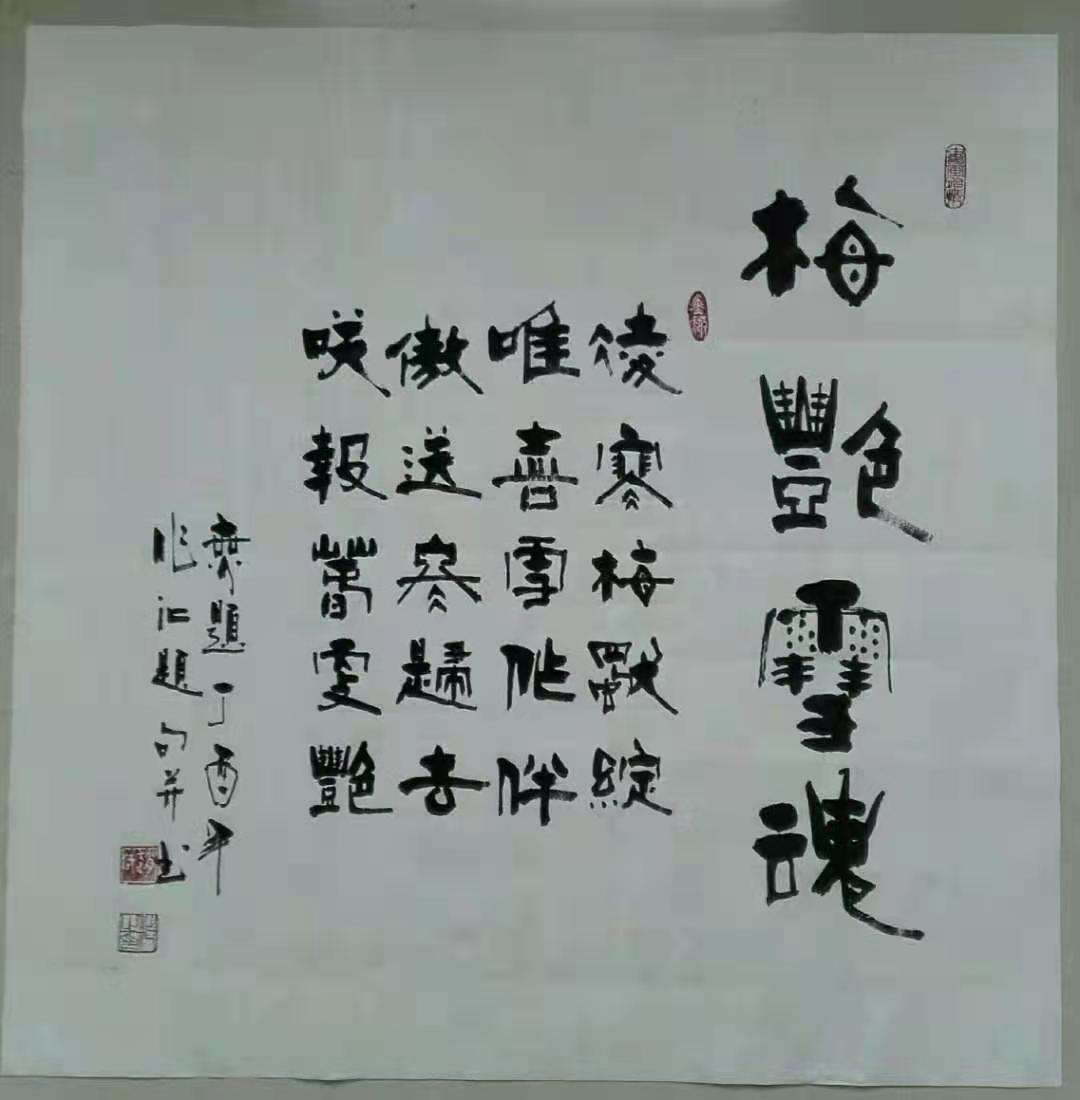 梅艷雪魂
凌寒梅獸綻
唯喜雪作伴
傲送寒歸去
咲報萬雯艷
無題丁酉年
兆江題句并书